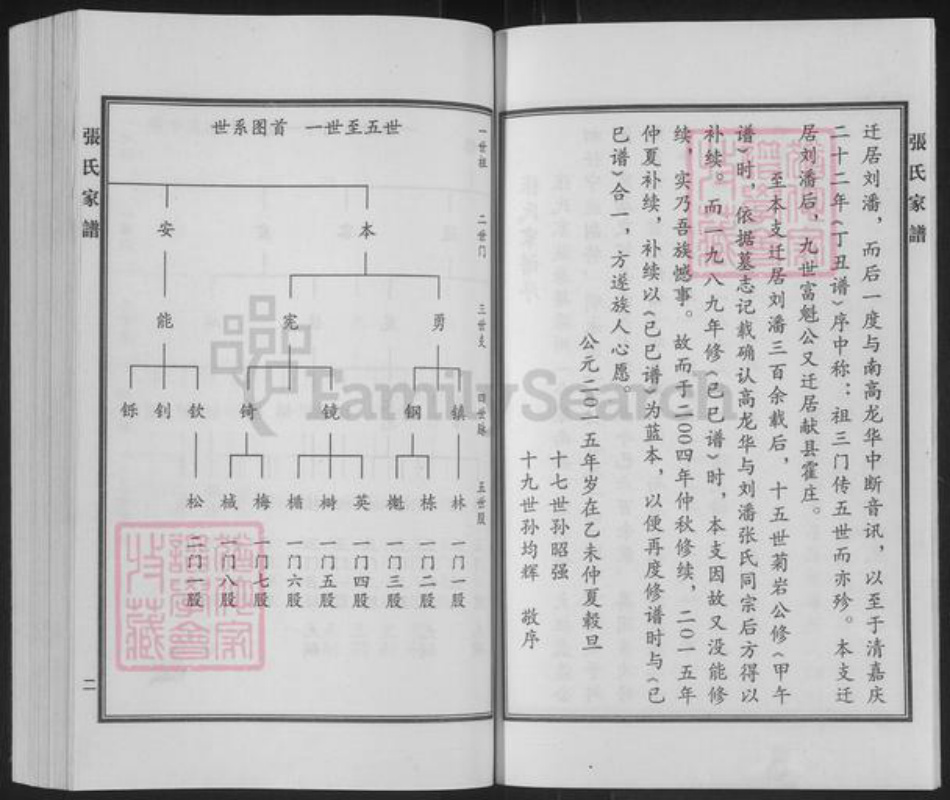 張氏家譜
迁居刘潘，而后一度与南高龙华中断音讯，以至于清嘉庆
二十二年《丁丑谱》序中称：祖三门传五世而亦殄。本支迁
居刘潘后，九世富魁公又迁居献县霍庄。
至本支迁居刘潘三百余载后，十五世菊岩公修《甲午
谱》时，依据墓志记载确认高龙华与刘潘张氏同宗后方得以
补续。而一九八九年修《己巳谱》时，本支因故又没能修
续，实乃吾族憾事。故而于二00四年仲秋修续，二0一五年
仲夏补续，补续以《己巳谱》为蓝本，以便再度修谱时与《己
巳谱》合一，方遂族人心愿。
公元二0一五年岁在乙未仲夏榖旦
十七世孙昭强
十九世孙均辉 敬序
世系图首 一世至五世
一世祖
二世门
三世支
四世脉
五世股
本
安
勇
宪
能
镇
钢
镜
锜
钦
钊
铄
林 一门一股
栋 一门二股
一门三股
英 一门四股
树 一门五股
楯 一门六股
梅 一门七股
棫 一门八股
松 二门一股
張氏家譜
二
FamilySearch